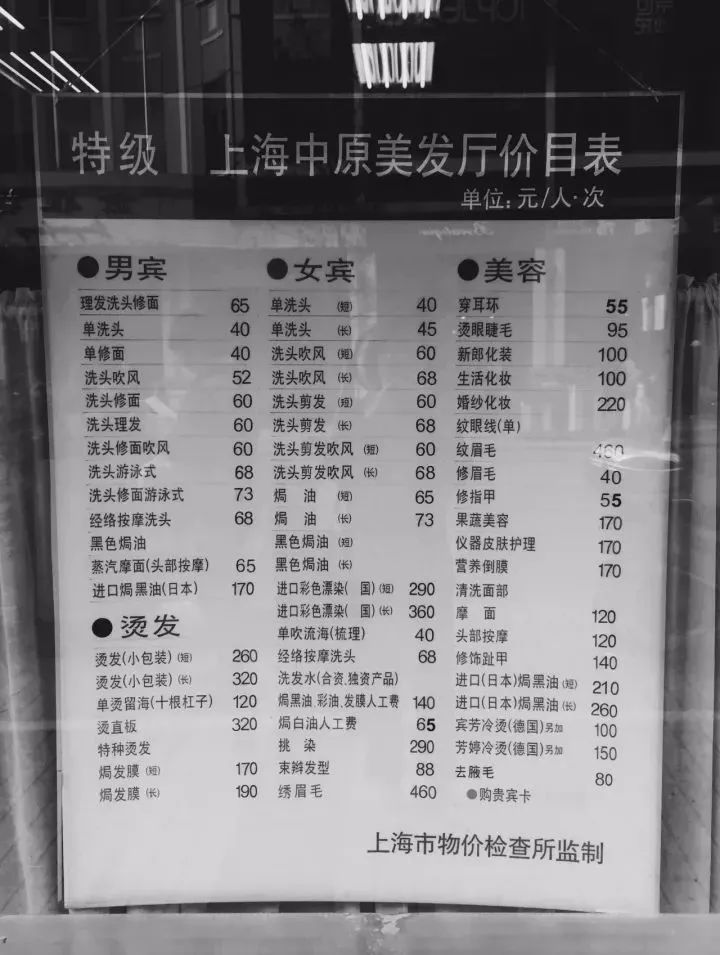 特级 上海中原美发厅价目表
单位:元/人·次
●男宾
理发洗头修面 65
单洗头 40
单修面 40
洗头吹风 52
洗头修面 60
洗头理发 60
洗头修面吹风 60
洗头游泳式 68
洗头修面游泳式 73
经络按摩洗头 68
黑色焗油
蒸汽摩面(头部按摩) 65
进口焗黑油(日本) 170
●烫发
烫发(小包装)(短) 260
烫发(小包装)(长) 320
单烫留海(十根杠子) 120
烫直板 320
特种烫发
焗发膜(短) 170
焗发膜(长) 190
●女宾
单洗头(短) 40
单洗头(长) 45
洗头吹风(短) 60
洗头吹风(长) 68
洗头剪发(短) 60
洗头剪发(长) 68
洗头剪发吹风(短) 60
洗头剪发吹风(长) 68
焗 油(短) 65
焗 油(长) 73
黑色焗油(短)
黑色焗油(长)
进口彩色漂染( 国)(短) 290
进口彩色漂染( 国)(长) 360
单吹流海(梳理) 40
经络按摩洗头 68
洗发水(合资.独资产品)
焗黑油.彩油.发膜人工费 140
焗白油人工费 65
挑 染 290
束辫发型 88
绣眉毛 460
●美容
穿耳环 55
烫眼睫毛 95
新郎化装 100
生活化妆 100
婚纱化妆 220
纹眼线(单)
纹眉毛 460
修眉毛 40
修指甲 55
果蔬美容 170
仪器皮肤护理 170
营养倒膜 170
清洗面部
摩 面 120
头部按摩 120
修饰趾甲 140
进口(日本)焗黑油(短) 210
进口(日本)焗黑油(长) 260
宾芳冷烫(德国)另加 100
芳婷冷烫(德国)另加 150
去腋毛 80
●购贵宾卡
上海市物价检查所监制